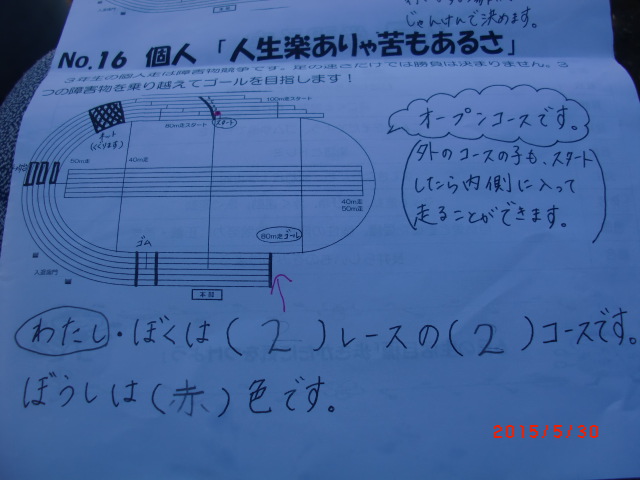 じゃんけんで決めます。
No.16 個人 「人生楽ありゃ苦もあるさ」
3年生の個人走は障害物競争です。足の速さだけでは勝負は決まりません。3
つの障害物を乗り越えてゴールを目指します！
100m走スタート
80m走スタート
スタート
ネット
(くぐります)
50m走
40m走
40m走
50m走
80m走ゴール
ゴム
入退場門
本部
オープンコースです。
(外のコースの子も、スタート
したら内側に入って
走ることができます。)
わたし・ぼくは(2)レースの(2)コースです。
ぼうしは(赤)色です。
2015/5/30